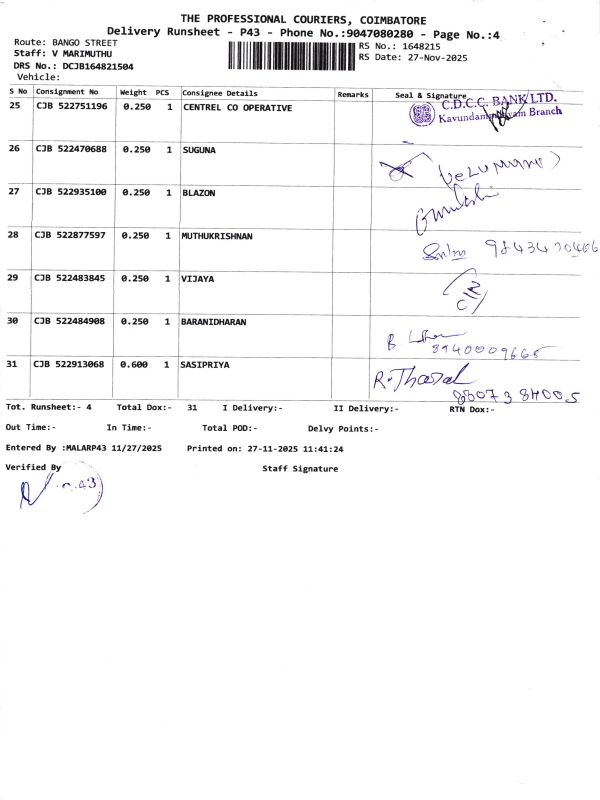 THE PROFESSIONAL COURIERS, COIMBATORE
Delivery Runsheet - P43 - Phone No.:9047080280 - Page No.:4
Route: BANGO STREET
RS No.: 1648215
Staff: V MARIMUTHU
RS Date: 27-Nov-2025
DRS No.: DCJB164821504
Vehicle:
S No Consignment No Weight PCS Consignee Details Remarks Seal & Signature
25 CJB 522751196 0.250 1 CENTREL CO OPERATIVE C.D.C.C. BANK LTD.
Branch
26 CJB 522470688 0.250 1 SUGUNA
27 CJB 522935100 0.250 1 BLAZON
28 CJB 522877597 0.250 1 MUTHUKRISHNAN
29 CJB 522483845 0.250 1 VIJAYA
30 CJB 522484908 0.250 1 BARANIDHARAN B
31 CJB 522913068 0.600 1 SASIPRIYA
Tot. Runsheet:- 4 Total Dox:- 31 I Delivery:- II Delivery:- RTN Dox:-
Out Time:- In Time:- Total POD:- Delvy Points:-
Entered By :MALARP43 11/27/2025 Printed on: 27-11-2025 11:41:24
Verified By Staff Signature